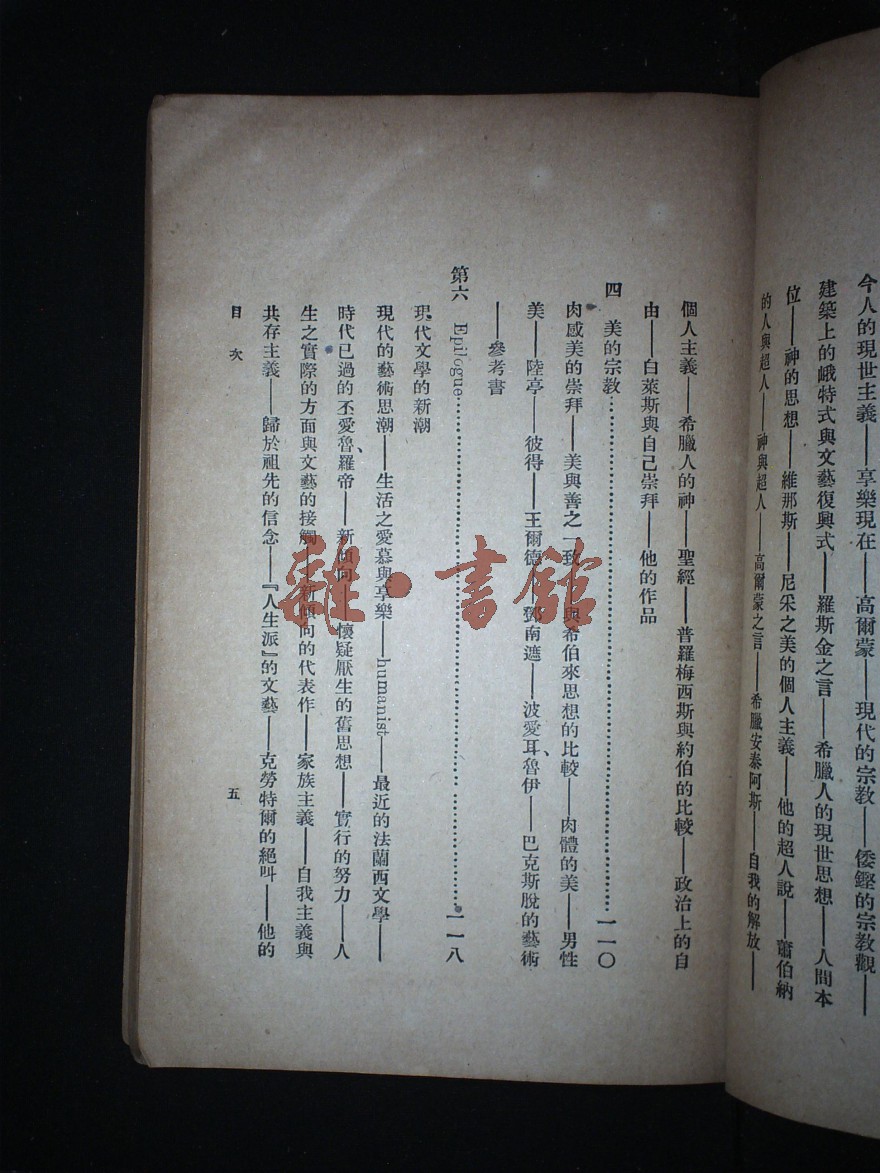 今人的現世主義——享樂現在——高爾蒙——現代的宗教——倭鏗的宗教觀——
建築上的峨特式與文藝復興式——羅斯金之言——希臘人的現世思想——人間本
位——神的思想——維那斯——尼采之美的個人主義——他的超人說——蕭伯納
的人與超人——神與超人——高爾蒙之言——希臘安泰阿斯——自我的解放——
個人主義——希臘人的神——聖經——普羅梅西斯與約伯的比較——政治上的自
由——白萊斯與自己崇拜——他的作品
四 美的宗教…………一一〇
肉感美的崇拜——美與善之一致——與希伯來思想的比較——肉體的美——男性
美——陸亭——彼得——王爾德——鄧南遮——波愛耳、魯伊——巴克斯脫的藝術
——參考書
第六 Epilogue…………一一八
現代文學的新潮
現代的藝術思潮——生活之愛慕與享樂——humanist——最近的法蘭西文學——
時代已過的丕愛魯、羅帝——新傾向——懷疑厭生的舊思想——實行的努力——人
生之實際的方面與文藝的接觸——新傾向的代表作——家族主義——自我主義與
共存主義——歸於祖先的信念——『人生派』的文藝——克勞特爾的絕叫——他的
目次 五
雜·書館